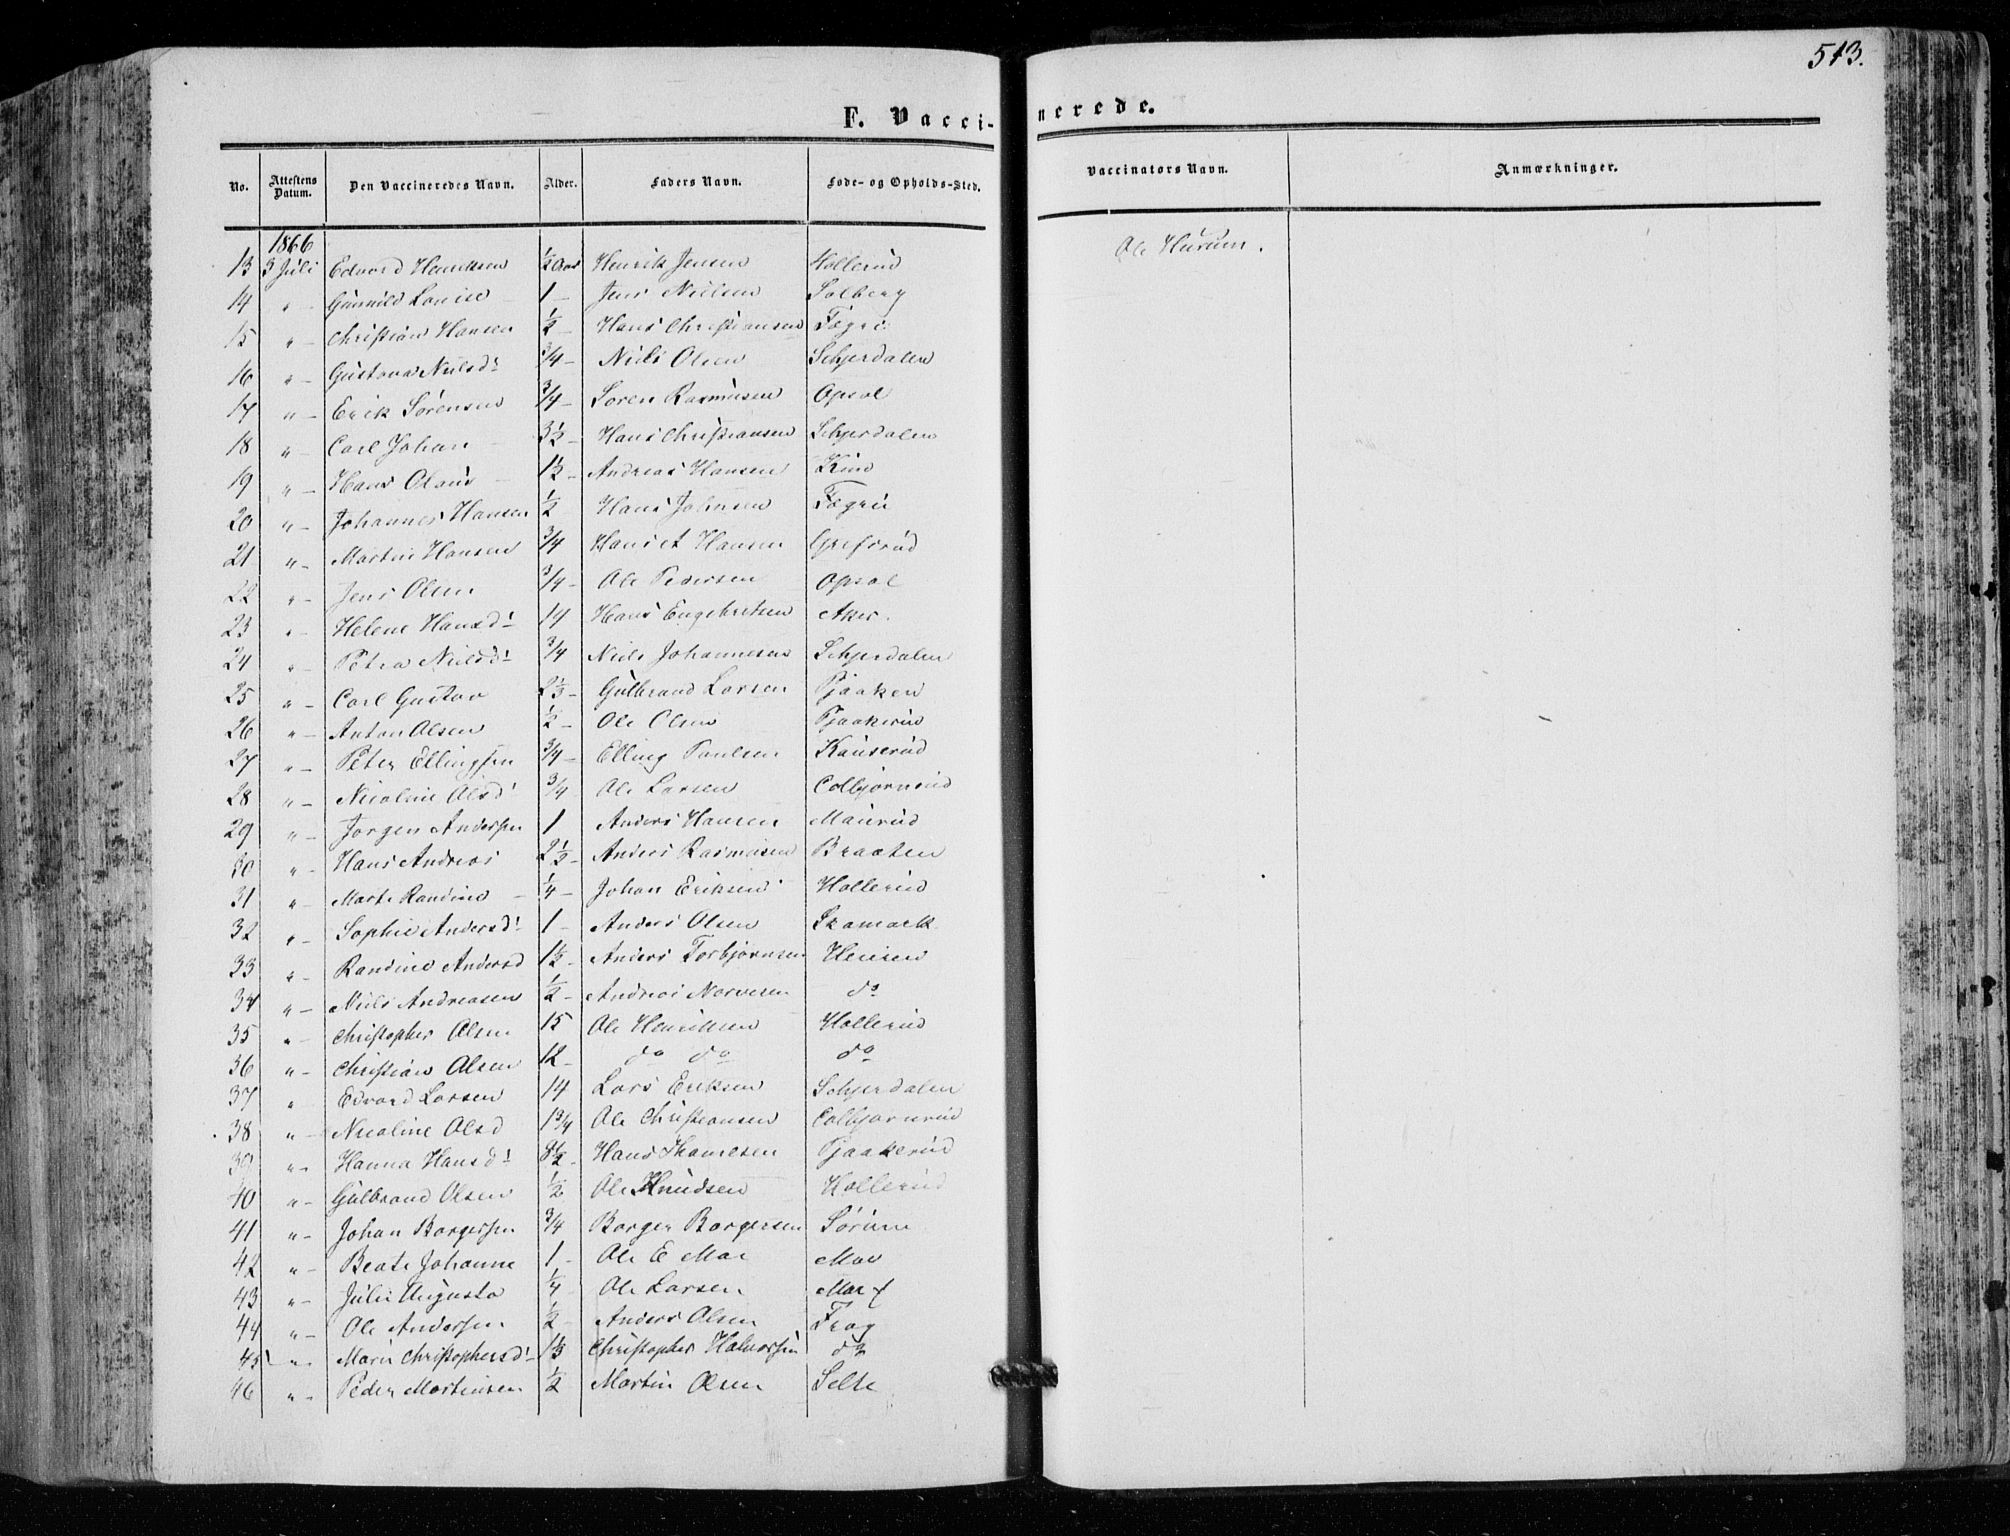 513.
F. Vaccinerede.
No. Attestens Datum. Den Vaccineredes Navn. Alder. Faders Navn. Føde- og Opholds-Sted. Vaccinators Navn. Anmærkninger.
1866
13 3 Juli Edvard Henriksen ½ Aar Henrik Jensen Hollerud Ole Hurum.
14 " - Gunnild Louise 1 - Jens Nielsen Solberg
15 " - Christian Hansen ½ - Hans Christiansen Fegri
16 " - Gustava Nielsd: ¾ - Niels Olsen Schjerdalen
17 " - Erik Sørensen ¾ - Soren Rasmusen Opsal
18 " - Carl Johan 3½ - Hans Christiansen Schjerdalen
19 " - Hans Olaus 1½ - Andreas Hansen
20 " - Johannes Hansen ½ Hans Johnsen Fegri
21 " - Martin Hansen ¾ Hans Hansen Grefsrud
22 " - Jens Olsen ¾ - Ole Pedersen Opsal
23 " - Helene Hansd: 14 Hans Engebretsen Aker.
24 " - Petra Nielsd: ¾ Niels Johannesen Schjerdalen
25 " - Carl Gustav 2½ - Gulbrand Larsen Pjaaken
26 " - Anton Olsen ½ - Ole Olsen Pjaakerud
27 " - Peter Ellingsen ¾ - Elling Paulsen Kauserud
28 " - Nicoline Olsd: ¾ Ole Larsen Colbjørnrud
29 " - Jorgen Andersen 1 Anders Hansen Maurud
30 " - Hans Andreas 2½ - Anders Rasmusen Braaten
31 " - Marte Randine ¼ - Johan Eriksen Hollerud
32 " - Sophie Andersd: 1 - Anders Olsen Skamark
33 " - Randine Andersd 1½ - Anders Torbjørnsen Hensen
34 " - Niels Andreasen ½ - Andreas Narvesen do
35 " - Christopher Olsen 15 Ole Henriksen Hollerud
36 " - Christian Olsen 12 - do do do
37 " - Edvard Larsen 14 Lars Eriksen Schjerdalen
38 " - Nicoline Olsd 1¾ Ole Christiansen Colbjornrud
39 " - Hanna Hansd: 8½ - Hans Pjaakerud
40 " - Gulbrand Olsen ½ Ole Knudsen Hollerud
41 " - Johan Borgersen ¾ Borger Borgersen Sörum
42 " - Beate Johanne 1 - Ole E Moe Moe
43 " - Julie Augusta ¼ Ole Larsen
44 " - Ole Andersen ½ - Anders Olsen Frog
45 " - Marie Christophersd: 1½ Christopher Halvorsen do
46 " - Peder Martinsen ½ Martin Olsen Selte